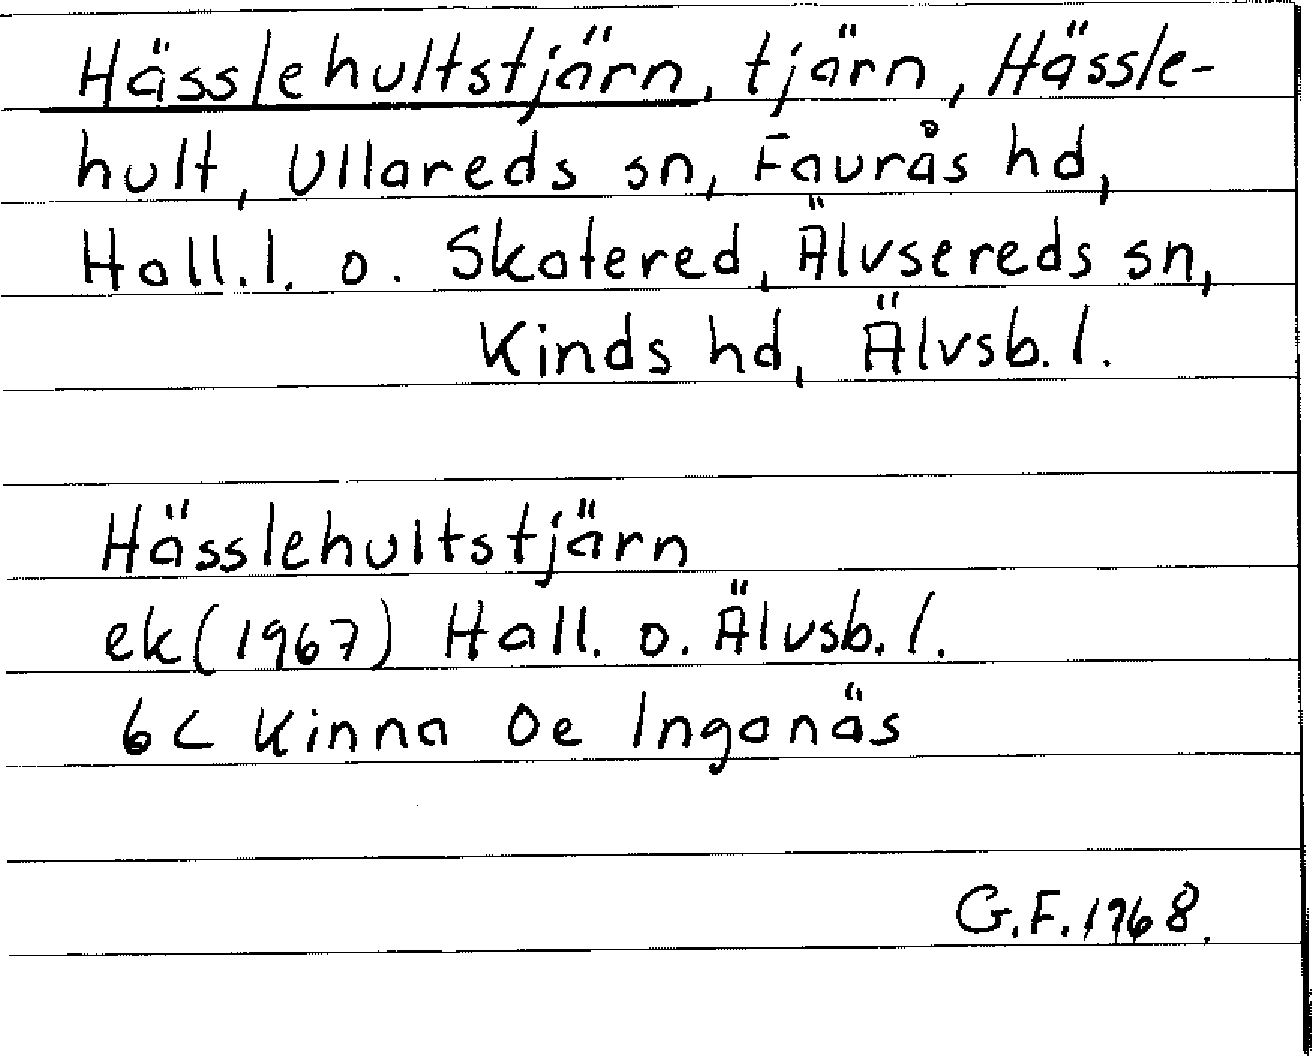 Hässlehultstjärn, tjärn, Hässle-
hult, Ullareds sn, Faurås hd,
Hall.l. o. Skatered, Älvsereds sn,
Kinds hd, Älvsb. l.
Hässlehultstjärn
ek (1967) Hall. o. Älvsb. l.
6C Kinna 0e Inganäs
G.F. 1968.